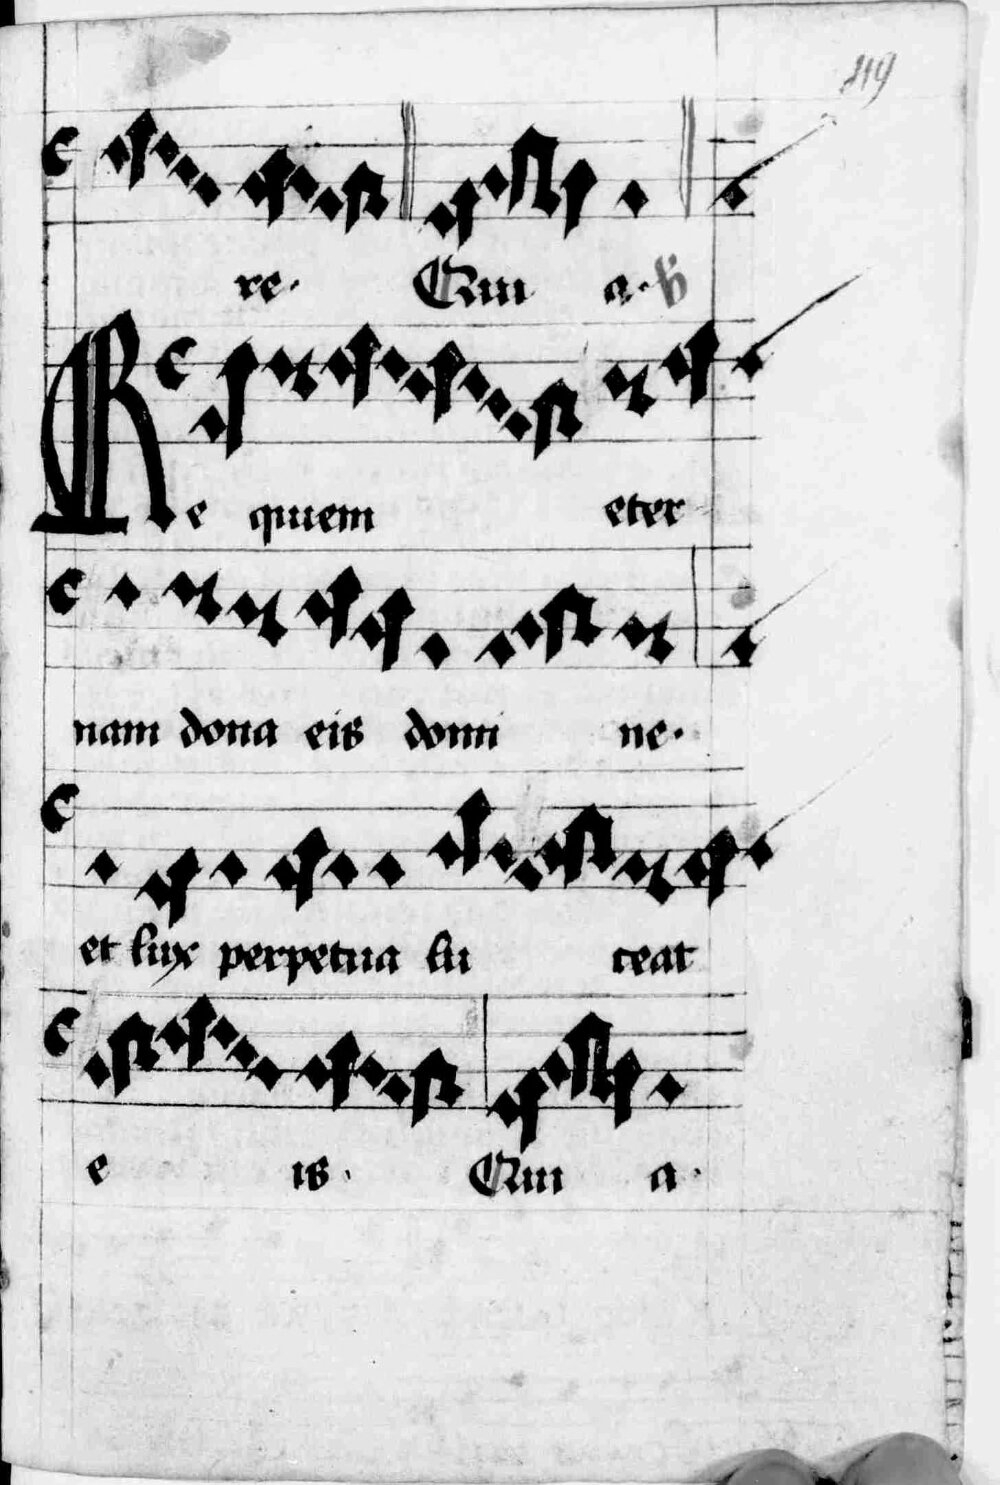 119
re. Qui a. ℣
Re quiem eter
nam dona eis domi ne.
et lux perpetua lu ceat
e is. Qui a.